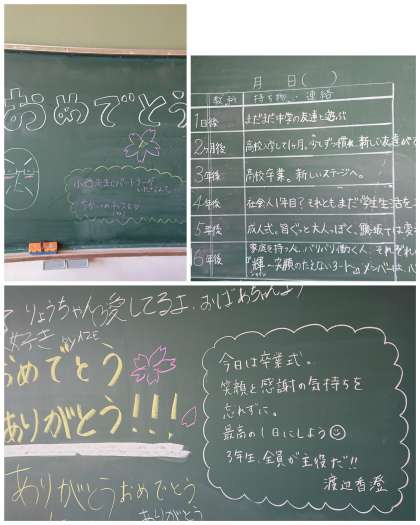 おめでとう
月 日( )
教科 持ち物・連絡
1日後 まだまだ中学の友達と遊ぶ
2ヶ月後 高校入学して1ヶ月。少しずつ慣れ、新しい友達が
3年後 高校卒業。新しいステージへ。
4年後 社会人1年目?それともまだ学生生活を
5年後 成人式。皆ぐっと大人っぽく。
6年後 家庭を持つ人、バリバリ働く人、それぞれ
りょうちゃん愛してるよ、おばあちゃんより
大好き
おめでとう
ありがとう!!!
ありがとうおめでとう
ありがとう
今日は卒業式。
笑顔と感謝の気持ちを
忘れずに。
最高の1日にしよう
3年生、全員が主役だ!!
渡辺香澄